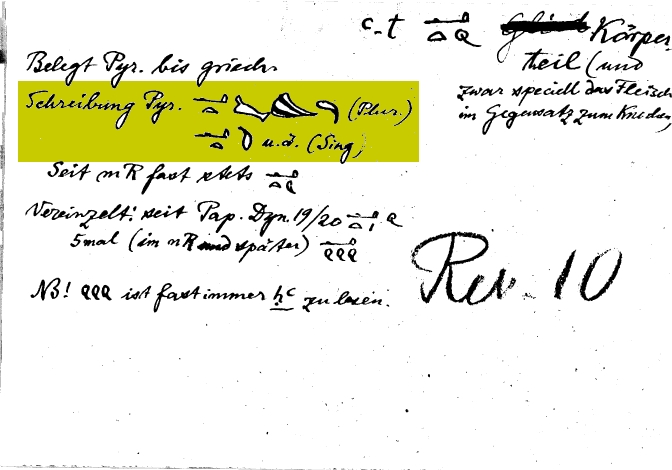 ꜥ.t 𓂝𓏏𓄹 Körper
teil (und
zwar speciell das Fleisch
im Gegensatz zum Knochen)
Belegt Pyr. bis griech.
Schreibung Pyr. 𓂝𓏏 (Plur.)
𓂝𓏏 u.ä. (Sing)
Seit mR fast stets 𓂝𓏏𓄹
Vereinzelt: seit Pap. Dyn. 19/20 𓂝𓏏𓏤𓄹
5mal (im nR und später) 𓂝𓄹𓄹𓄹
NB! 𓄹𓄹𓄹 ist fast immer ḥꜥ zu lesen.
Rev. 10